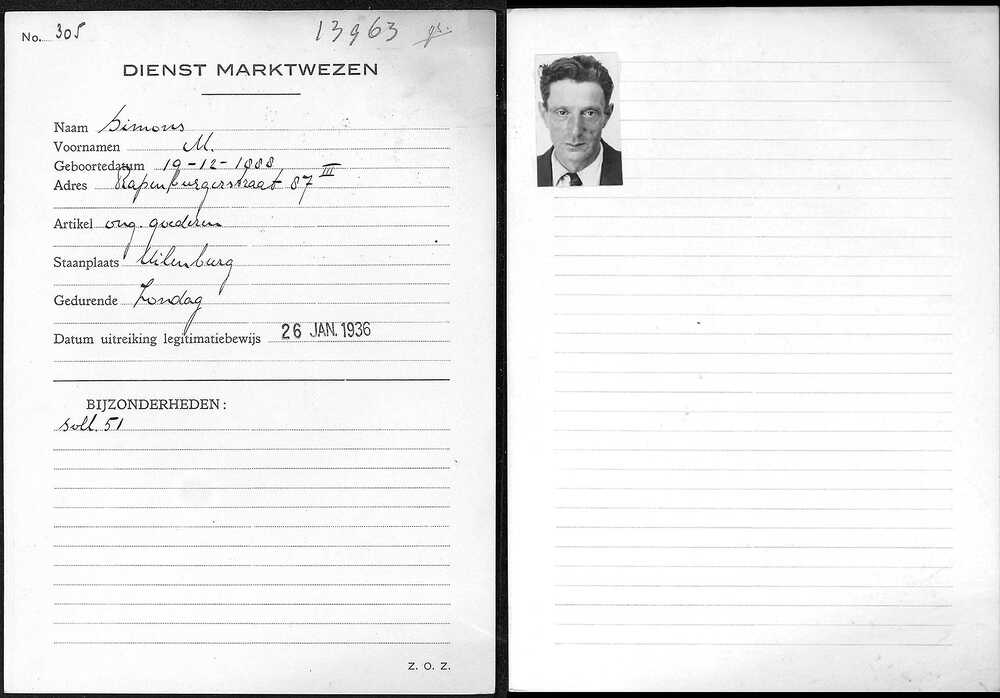 No. 305 13963 gr.
DIENST MARKTWEZEN
Naam Simons
Voornamen M.
Geboortedatum 19-12-1888
Adres Rapenburgerstraat 87 III
Artikel ong. goederen
Staanplaats Uilenburg
Gedurende Zondag
Datum uitreiking legitimatiebewijs 26 JAN. 1936
BIJZONDERHEDEN:
soll. 51
Z. O. Z.